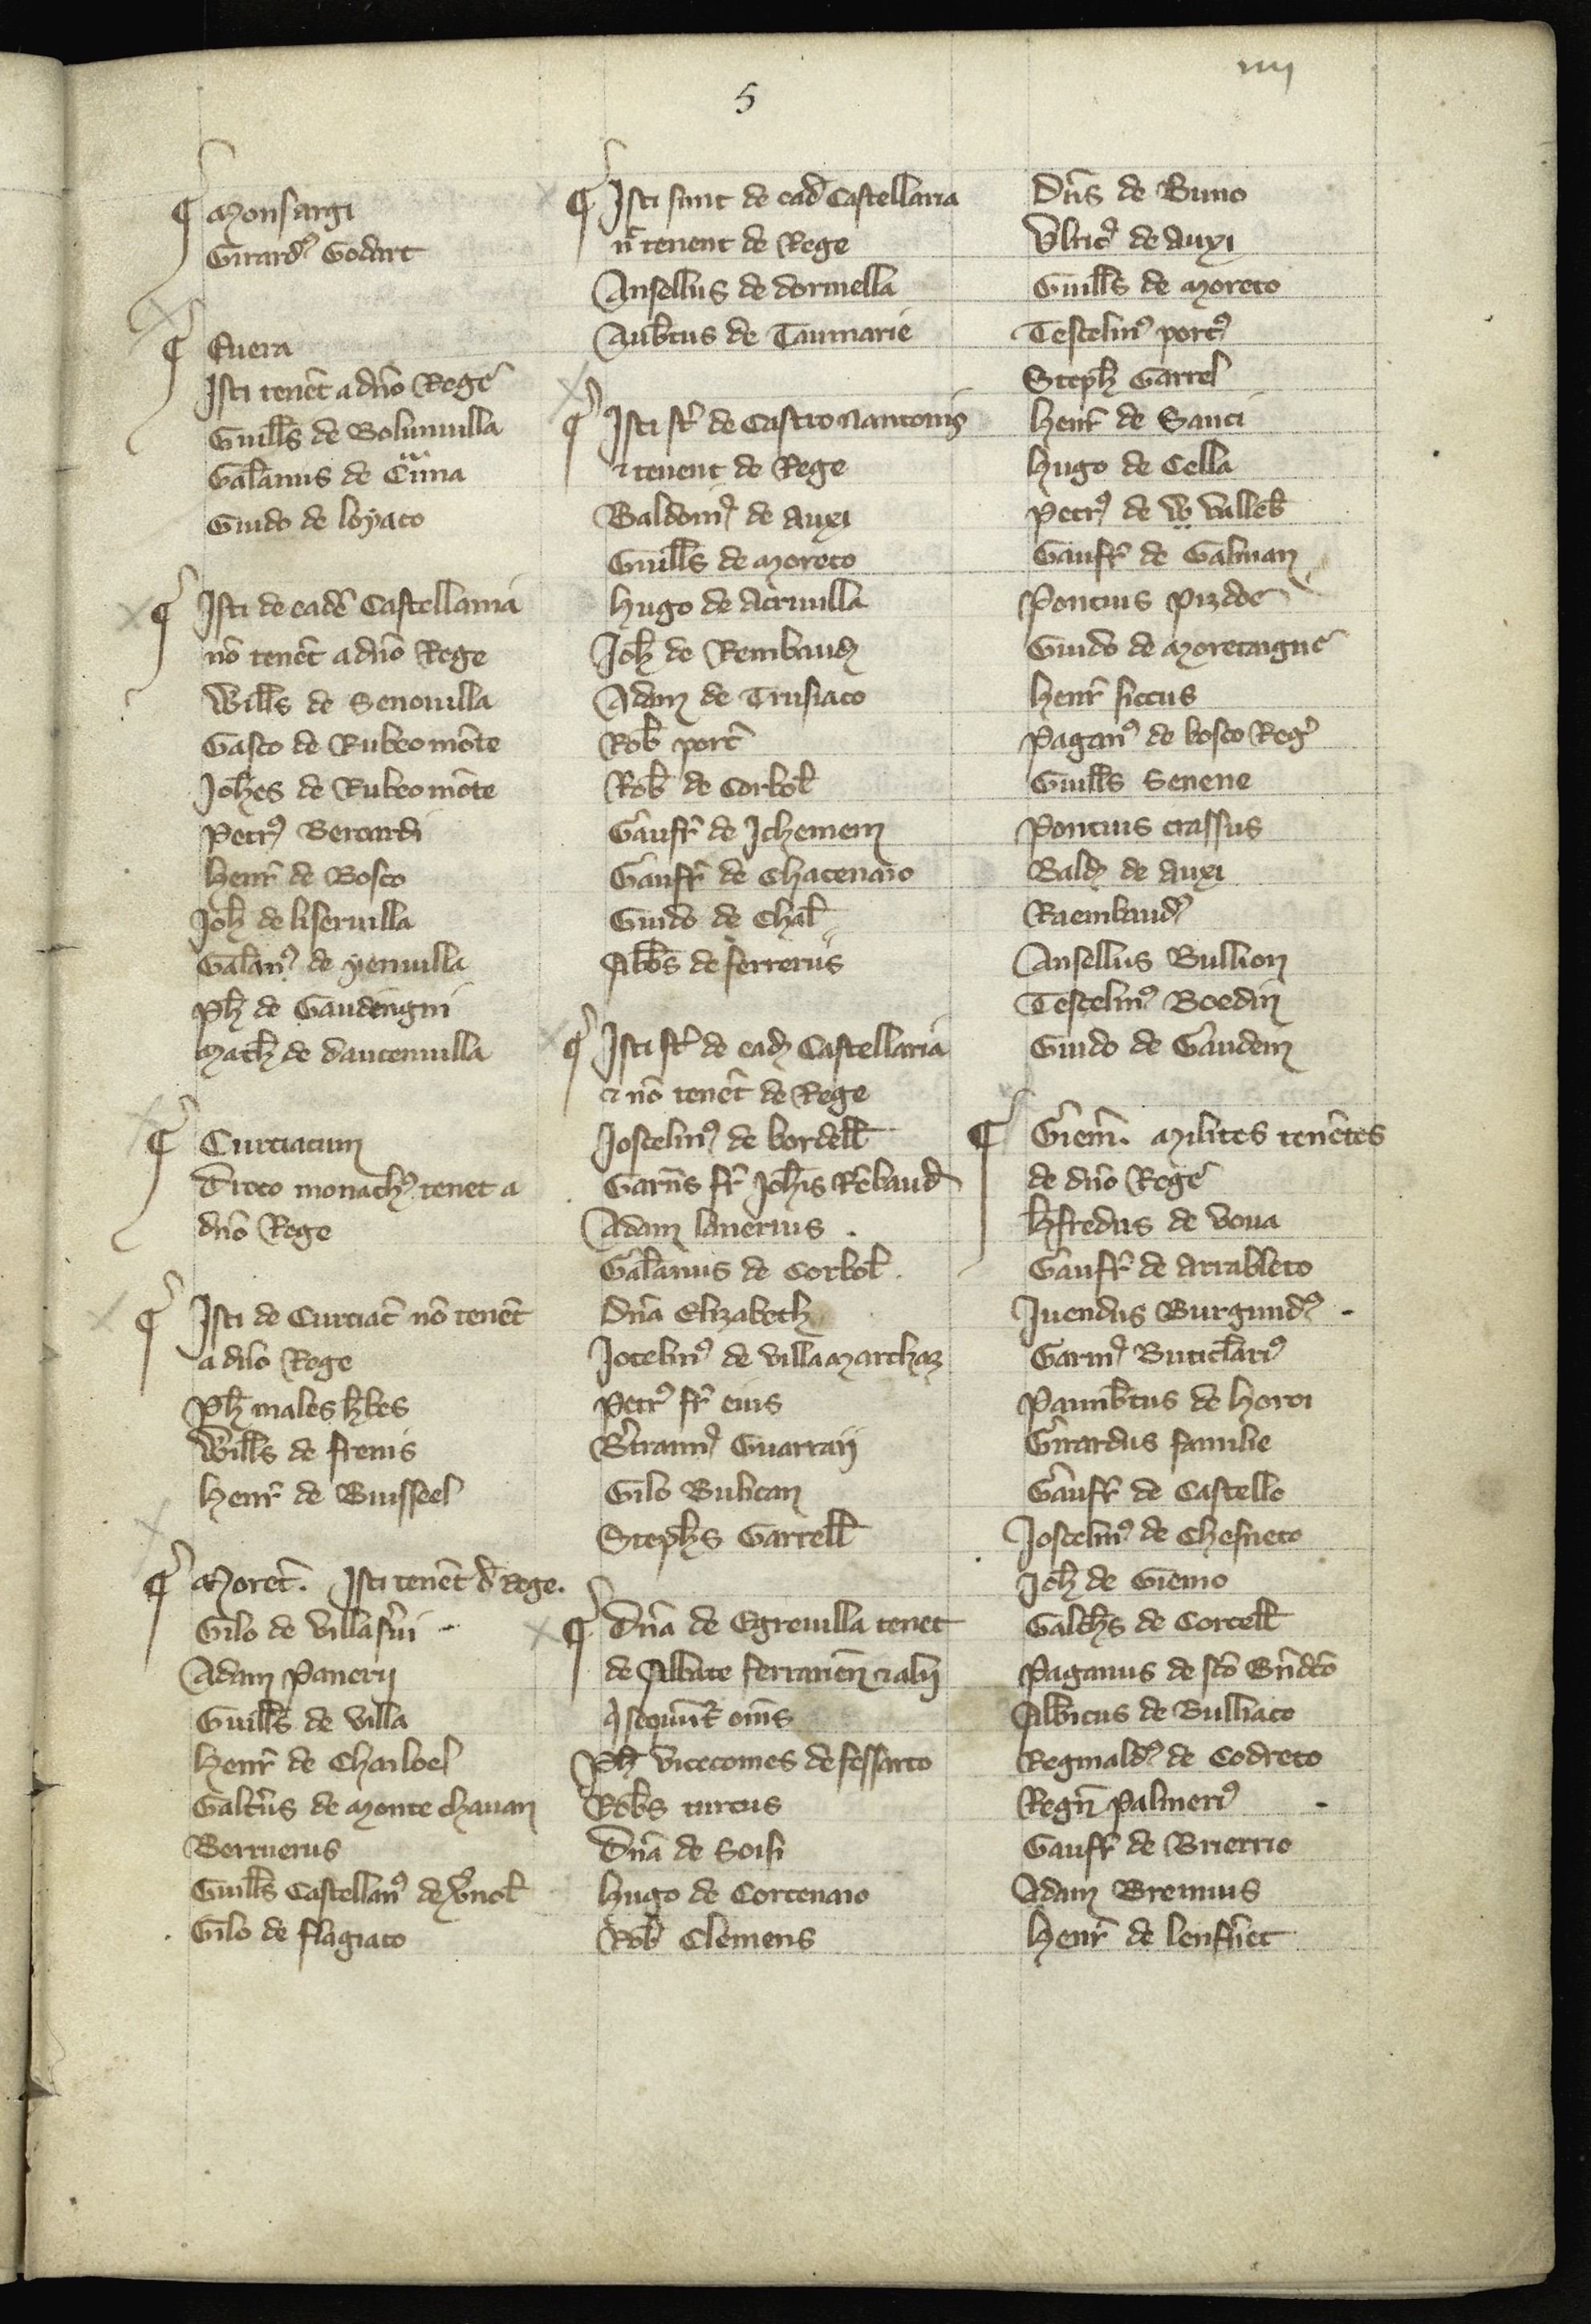 iiij
5
¶ Monsargi
Girardꝰ Godart
¶ Evera
Isti tenēt a dño Rege
Guills de Bolunvilla
Galānus de Cuna
Guido de loyaco
¶ Isti de eadē Castellania
nō tenēt a dño Rege
Wills de Senovilla
Gasco de Rubeo mōte
Johes de Rubeo mōte
Petrꝰ Berardi
Henr̄ de Bosco
Joh de liservilla
Galanꝰ de yenvilla
Ph de Gaudengni
Math de dautenvilla
¶ Curciacum
Droco monachꝰ tenet a
dño Rege
¶ Isti de Curciac̄ nō tenēt
a dño Rege
Ph males hbes
Wills de frenis
Henr̄ de Buisseel
¶ Moret̄. Isti tenēt d̄ Rege.
Gilo de villa s̄vi
Adam Panerii
Guills de villa
Henr̄ de Chailoel
Galtr̄us de Monte chavan
Borruerus
Guills Castellanꝰ de v̄nol
Gilo de flagiaco
¶ Isti sunt de ead Castellaria
n̄ tenent de Rege
Ansellus de dormella
Aubtus de Taumarie
¶ Isti st̄ de Castro Nantonis
et tenent de Rege
Baldoinꝰ de Auxi
Guills de Moreto
Hugo de Acrivilla
Joh de Rembaud
Adam de Trusiaco
Rob port̄
Rob de Corbol
Gaufr̄ de Ichemem
Gaufr̄ de Chatenaio
Guido de Chal
Abbs de ferreriis
¶ Isti st̄ de ead Castellaria
et nō tenēt de Rege
Joscelinꝰ de bordell
Garn̄s fr̄ Johis Rēbaud
Adam lanerius
Galānus de Corbol
Dn̄a Elizabeth
Jocelinꝰ de villa Marchaz
Petrꝰ fr̄ eius
B̄trannꝰ Guarraii
Gilo Bulican
Stephs Garrell
¶ Dn̄a de Egrevilla tenet
de Abbate ferrariēn et alii
q̄ sequnt̄ om̄s
Ph vicecomes de fessarto
Robs turcus
Dn̄a de Soisi
Hugo de Cortenaio
Rob Clemens
Dn̄s de Buno
Ulricꝰ de Auxi
Guills de Moreto
Tescelinꝰ portꝰ
Steph Garrel
Henr̄ de Sanci
Hugo de Cella
Petrꝰ de W valleb
Gaufr̄ de Galman
Pontius Pizdoe
Guido de Moretaigne
Henr̄ siccus
Paganꝰ de bosco Reḡ
Guills Senene
Pontius crassus
Bald de Auxi
Raembaudꝰ
Ansellus Bullion
Tescelinꝰ Boedin
Guido de Gaudem
¶ Giem̄. Milites tenētes
de dño Rege
H̄fredus de Vova
Gaufr̄ de Arrableto
Juendus Burgundꝰ
Garinꝰ Buticlariꝰ
Paumbtus de Horoi
Girardus familie
Gaufr̄ de Castello
Joscelinꝰ de Chesneto
Joh de Giemo
Galchs de Corcell
Paganus de sc̄o B̄ndc̄o
Albicus de Bulliaco
Reginaldꝰ de Codreto
Regn̄ Palmeriꝰ
Gaufr̄ de Brierrio
Adam Bremus
Henr̄ de lenfn̄et